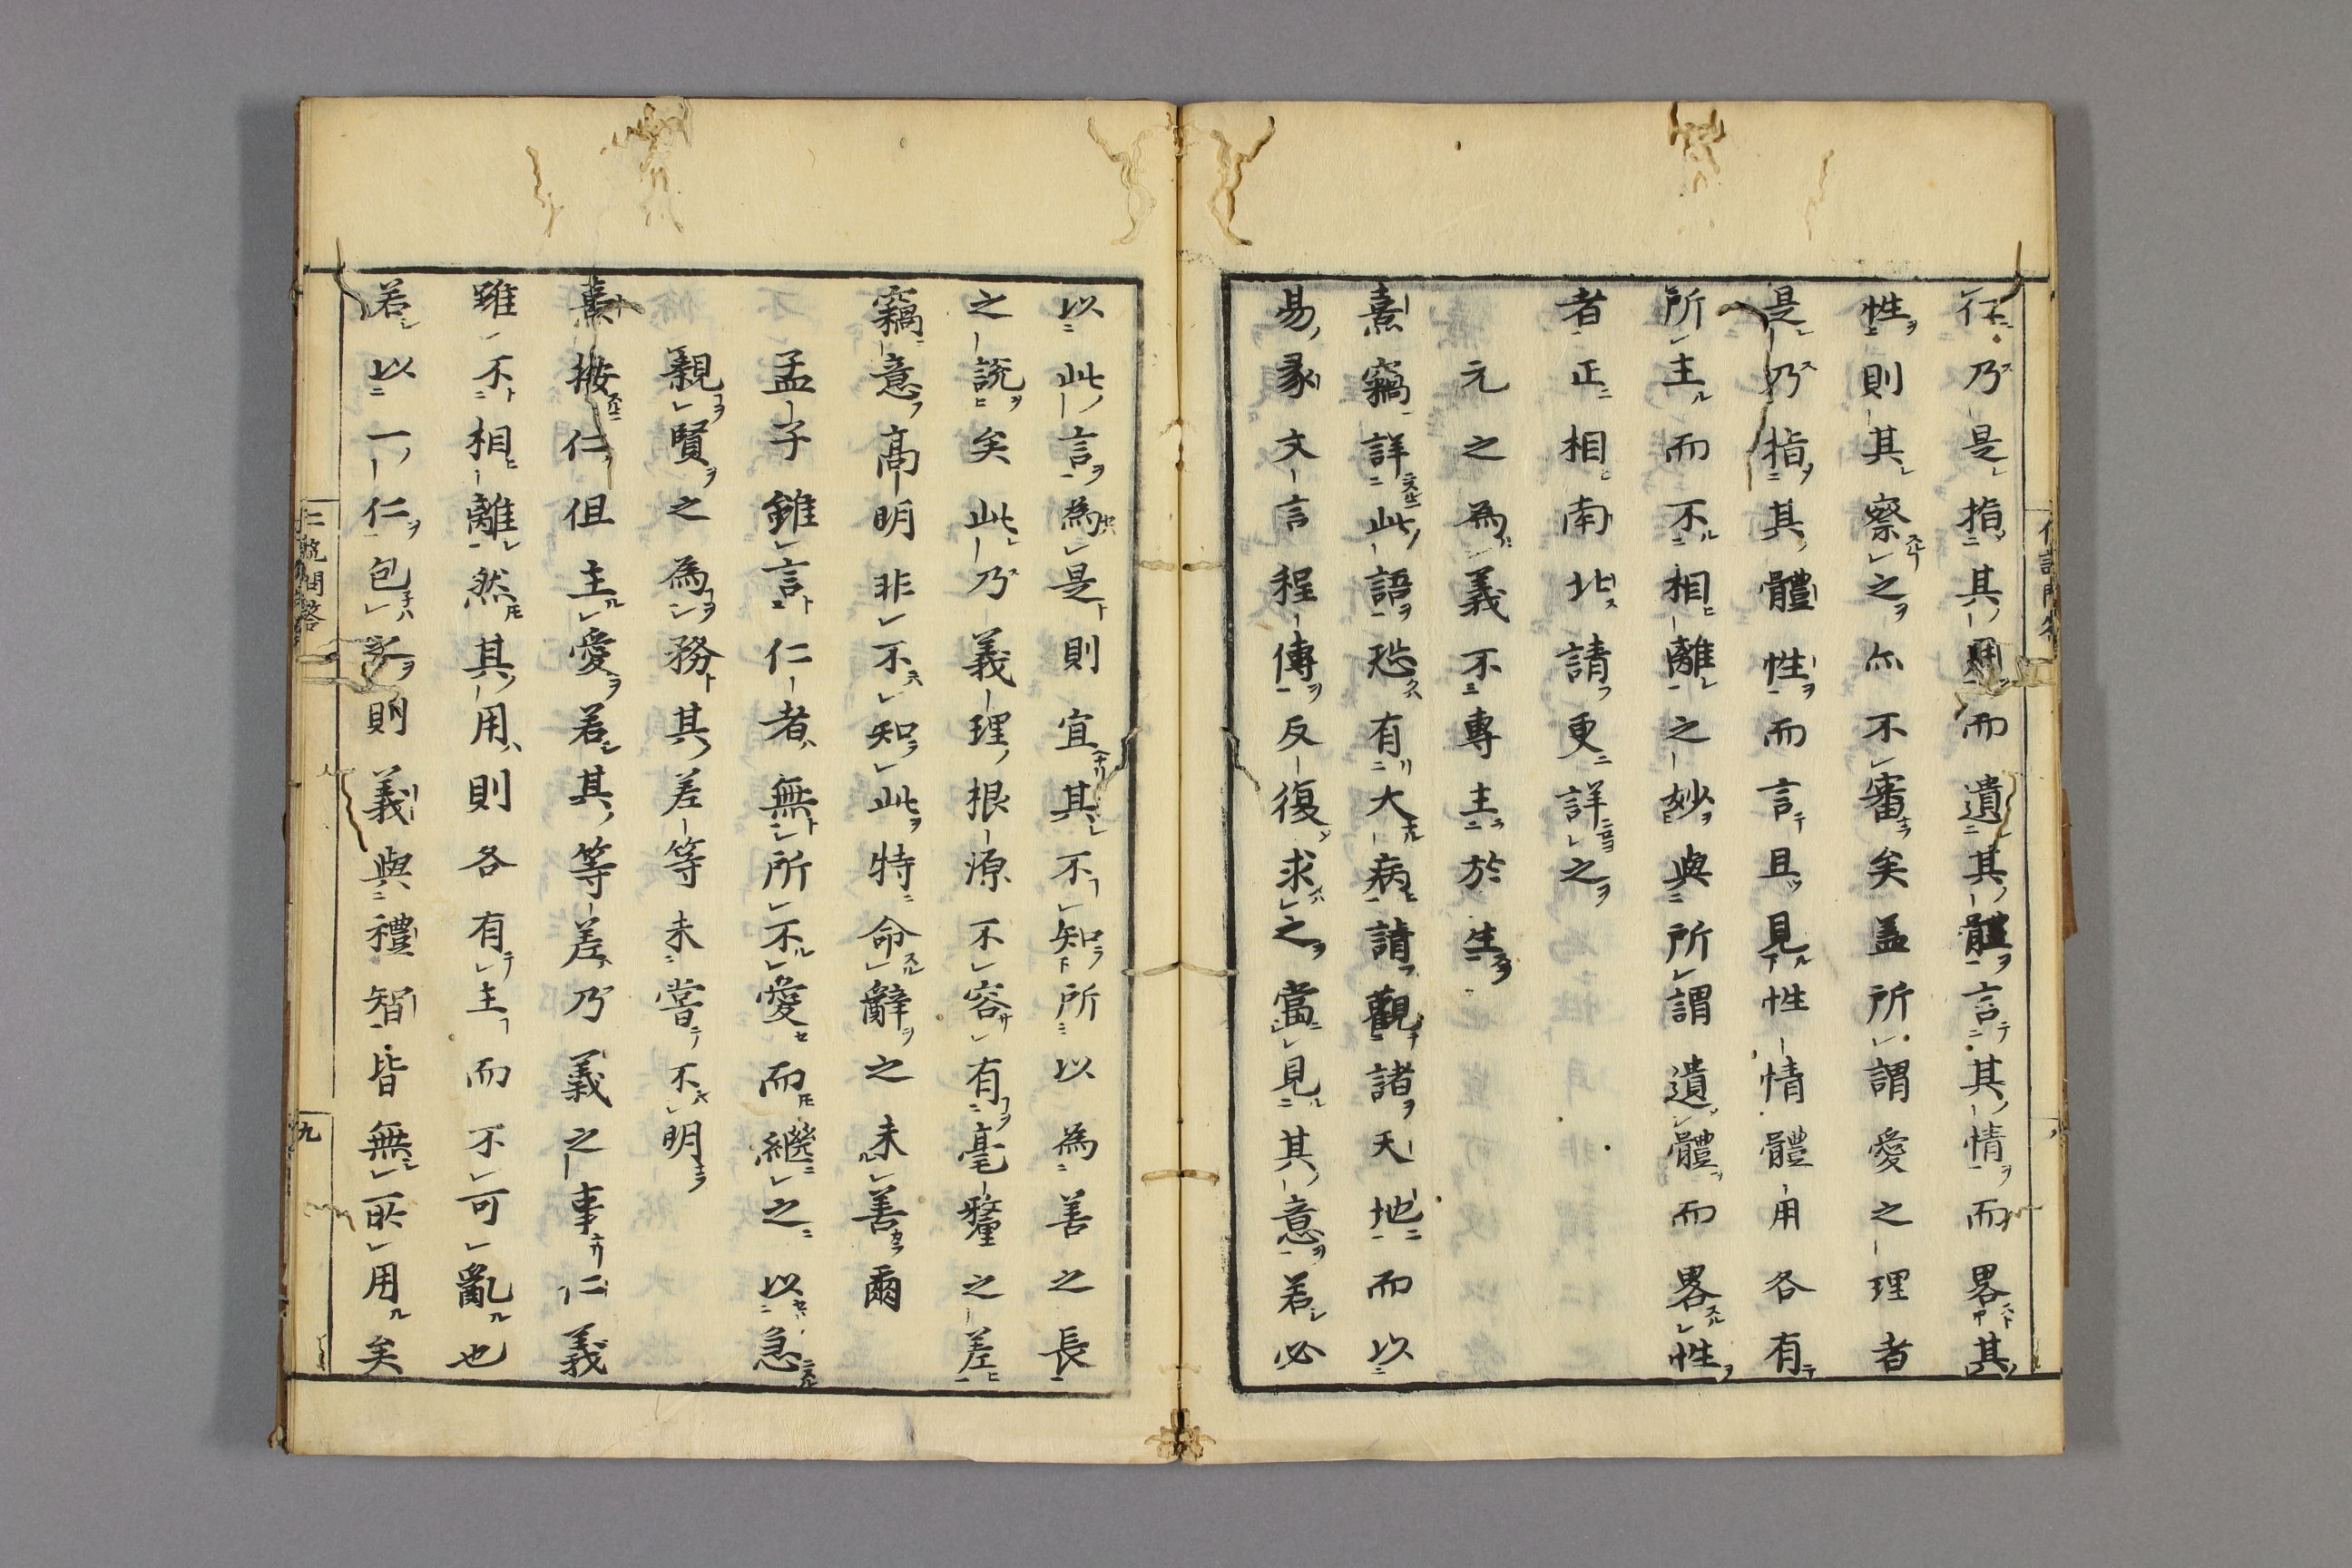 仁乃是指其用而遺其體言其情而畧其
性則其察之亦不審矣盖所謂愛之理者
是乃指其體性而言且見性情體用各有
所主而不相離之妙與所謂遺體而畧性
者正相南北請更詳之
元之為義不專主於生
熹竊詳此語恐有大病請觀諸天地而以
易彖文言程傳反復求之當見其意若必
以此言為是則宜其不知所以為善之長
之說矣此乃義理根源不容有毫釐之差
竊意高明非不知此特命辭之未善爾
孟子雖言仁者無所不愛而繼之以急
親賢之為務其差等未嘗不明
熹按仁但主愛若其等差乃義之事仁義
雖不相離然其用則各有主而不可亂也
若以一仁包之則義與禮智皆無所用矣
仁說問答
九